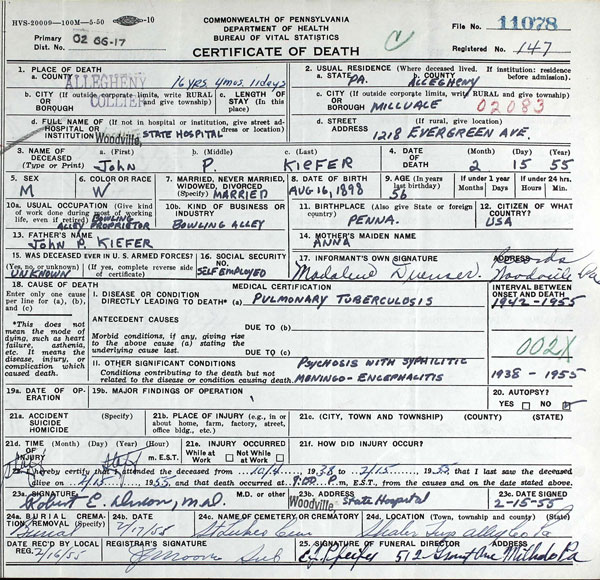 HVS-20009—100M—5-50 10
COMMONWEALTH OF PENNSYLVANIA
DEPARTMENT OF HEALTH
BUREAU OF VITAL STATISTICS
CERTIFICATE OF DEATH
File No. 11078
Primary Dist. No. 02 66-17
Registered No. 147
1. PLACE OF DEATH
a. COUNTY ALLEGHENY
16 yrs 4mos. 11days
2. USUAL RESIDENCE (Where deceased lived. If institution: residence before admission).
a. STATE PA. b. COUNTY ALLEGHENY
b. CITY (If outside corporate limits, write RURAL OR and give township) BOROUGH COLLIER
c. LENGTH OF STAY (In this place)
c. CITY (If outside corporate limits, write RURAL and give township) OR BOROUGH MILLVALE 02083
d. FULL NAME OF (If not in hospital or institution, give street address or location) HOSPITAL OR INSTITUTION Woodville, STATE HOSPITAL
d. STREET ADDRESS (If rural, give location) 1218 EVERGREEN AVE.
3. NAME OF DECEASED (Type or Print) a. (First) John b. (Middle) P. c. (Last) KIEFER
4. DATE OF DEATH (Month) (Day) (Year) 2 15 55
5. SEX M
6. COLOR OR RACE W
7. MARRIED, NEVER MARRIED, WIDOWED, DIVORCED (Specify) MARRIED
8. DATE OF BIRTH AUG 16, 1898
9. AGE (In years last birthday) 56
If under 1 year Months Days
If under 24 hrs. Hours Min.
10a. USUAL OCCUPATION (Give kind of work done during most of working life, even if retired) BOWLING ALLEY PROPRIETOR
10b. KIND OF BUSINESS OR INDUSTRY BOWLING ALLEY
11. BIRTHPLACE (Also give State or foreign country) PENNA.
12. CITIZEN OF WHAT COUNTRY? USA
13. FATHER'S NAME JOHN P. KIEFER
14. MOTHER'S MAIDEN NAME ANNA
15. WAS DECEASED EVER IN U. S. ARMED FORCES? (Yes, no, or unknown) (If yes, complete reverse side of certificate) UNKNOWN
16. SOCIAL SECURITY NO. SELF EMPLOYED
17. INFORMANT'S OWN SIGNATURE Madaline ADDRESS Records Woodville Pa
18. CAUSE OF DEATH
MEDICAL CERTIFICATION
INTERVAL BETWEEN ONSET AND DEATH
Enter only one cause per line for (a), (b), and (c)
I. DISEASE OR CONDITION DIRECTLY LEADING TO DEATH* (a) PULMONARY TUBERCULOSIS 1942-1955
*This does not mean the mode of dying, such as heart failure, asthenia, etc. It means the disease, injury, or complication which caused death.
ANTECEDENT CAUSES
Morbid conditions, if any, giving rise to the above cause (a) stating the underlying cause last.
DUE TO (b)
DUE TO (c)
002X
II. OTHER SIGNIFICANT CONDITIONS
Conditions contributing to the death but not related to the disease or condition causing death.
PSYCHOSIS WITH SYPHILITIC MENINGO-ENCEPHALITIS 1938-1955
19a. DATE OF OPERATION
19b. MAJOR FINDINGS OF OPERATION
20. AUTOPSY? YES NO
21a. ACCIDENT SUICIDE HOMICIDE (Specify)
21b. PLACE OF INJURY (e.g., in or about home, farm, factory, street, office bldg., etc.)
21c. (CITY, TOWN AND TOWNSHIP) (COUNTY) (STATE)
21d. TIME OF INJURY (Month) (Day) (Year) (Hour) m. EST.
21e. INJURY OCCURRED While at Work Not While at Work
21f. HOW DID INJURY OCCUR?
22. I hereby certify that I attended the deceased from 10/4 1938 to 2/15 1955 that I last saw the deceased
alive on 2/15 1955 and that death occurred at 9:00 P m, EST, from the causes and on the date stated above.
23a. SIGNATURE Robert E. M.D. M.D. or other
23b. ADDRESS Woodville, State Hospital
23c. DATE SIGNED 2-15-55
24a. BURIAL CREMATION, REMOVAL (Specify) Burial
24b. DATE 2/17/55
24c. NAME OF CEMETERY OR CREMATORY St Lukes Cem
24d. LOCATION (Town, township and county) (State) Shaler Twp Alleg Co Pa
DATE REC'D BY LOCAL REG. 2/16/55
REGISTRAR'S SIGNATURE J Moore Sub
25. SIGNATURE OF FUNERAL DIRECTOR ADDRESS 512 Grant Ave Millvale Pa